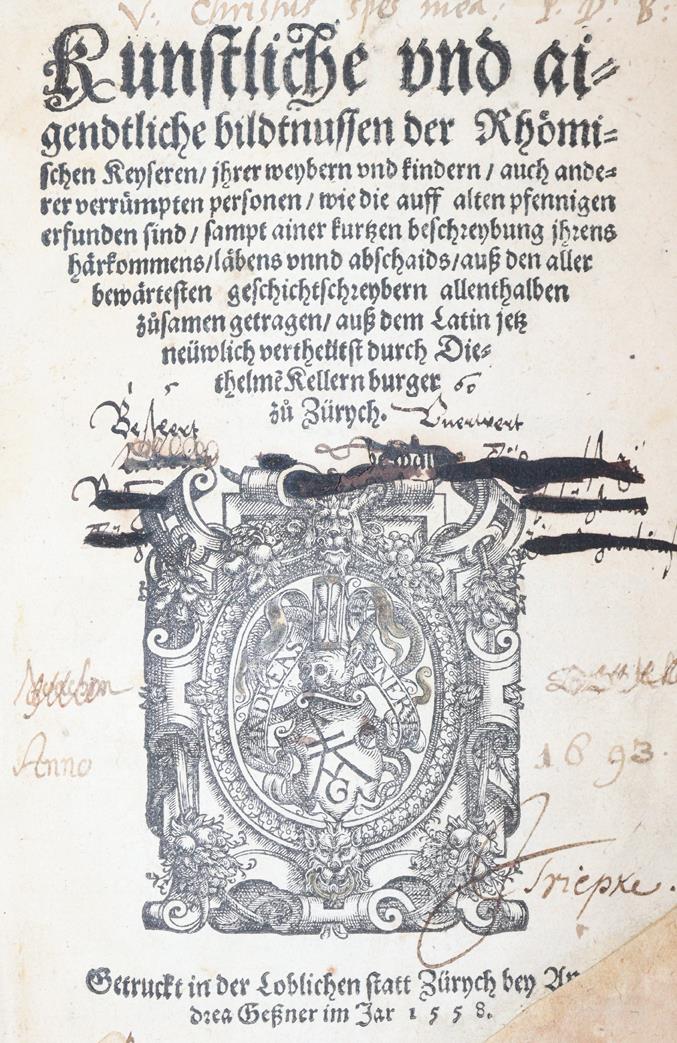 V: Christus spes mea: P. P. B:
Kunstliche vnd ai⸗
gendtliche bildtnussen der Rhömi⸗
schen Keyseren/ jhrer weybern vnd kindern/ auch ande⸗
rer verrümpten personen/ wie die auff alten pfennigen
erfunden sind/ sampt ainer kurtzen beschreybung jhrens
härkommens/läbens vnnd abschaids/auß den aller
bewärtesten geschichtschreybern allenthalben
zůsamen getragen/ auß dem Latin jetz
neüwlich vertheütst durch Die⸗
thelmē Kellern burger
15 60
zů Zürych.
Beschert Vnerwert
ANDREAS GESNERVS
Anno 1693.
Triepke.
Getruckt in der Loblichen statt Zürych bey An
drea Geßner im Jar 1558.